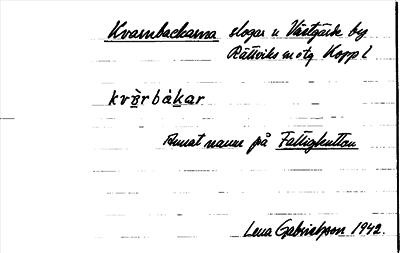 Kvarnbackarna slogar u Västgärde by
Rättviks sn otg Kopp l
kvärbákar
Annat namn på Fattigkutton
Lena Gabrielsson 1942.